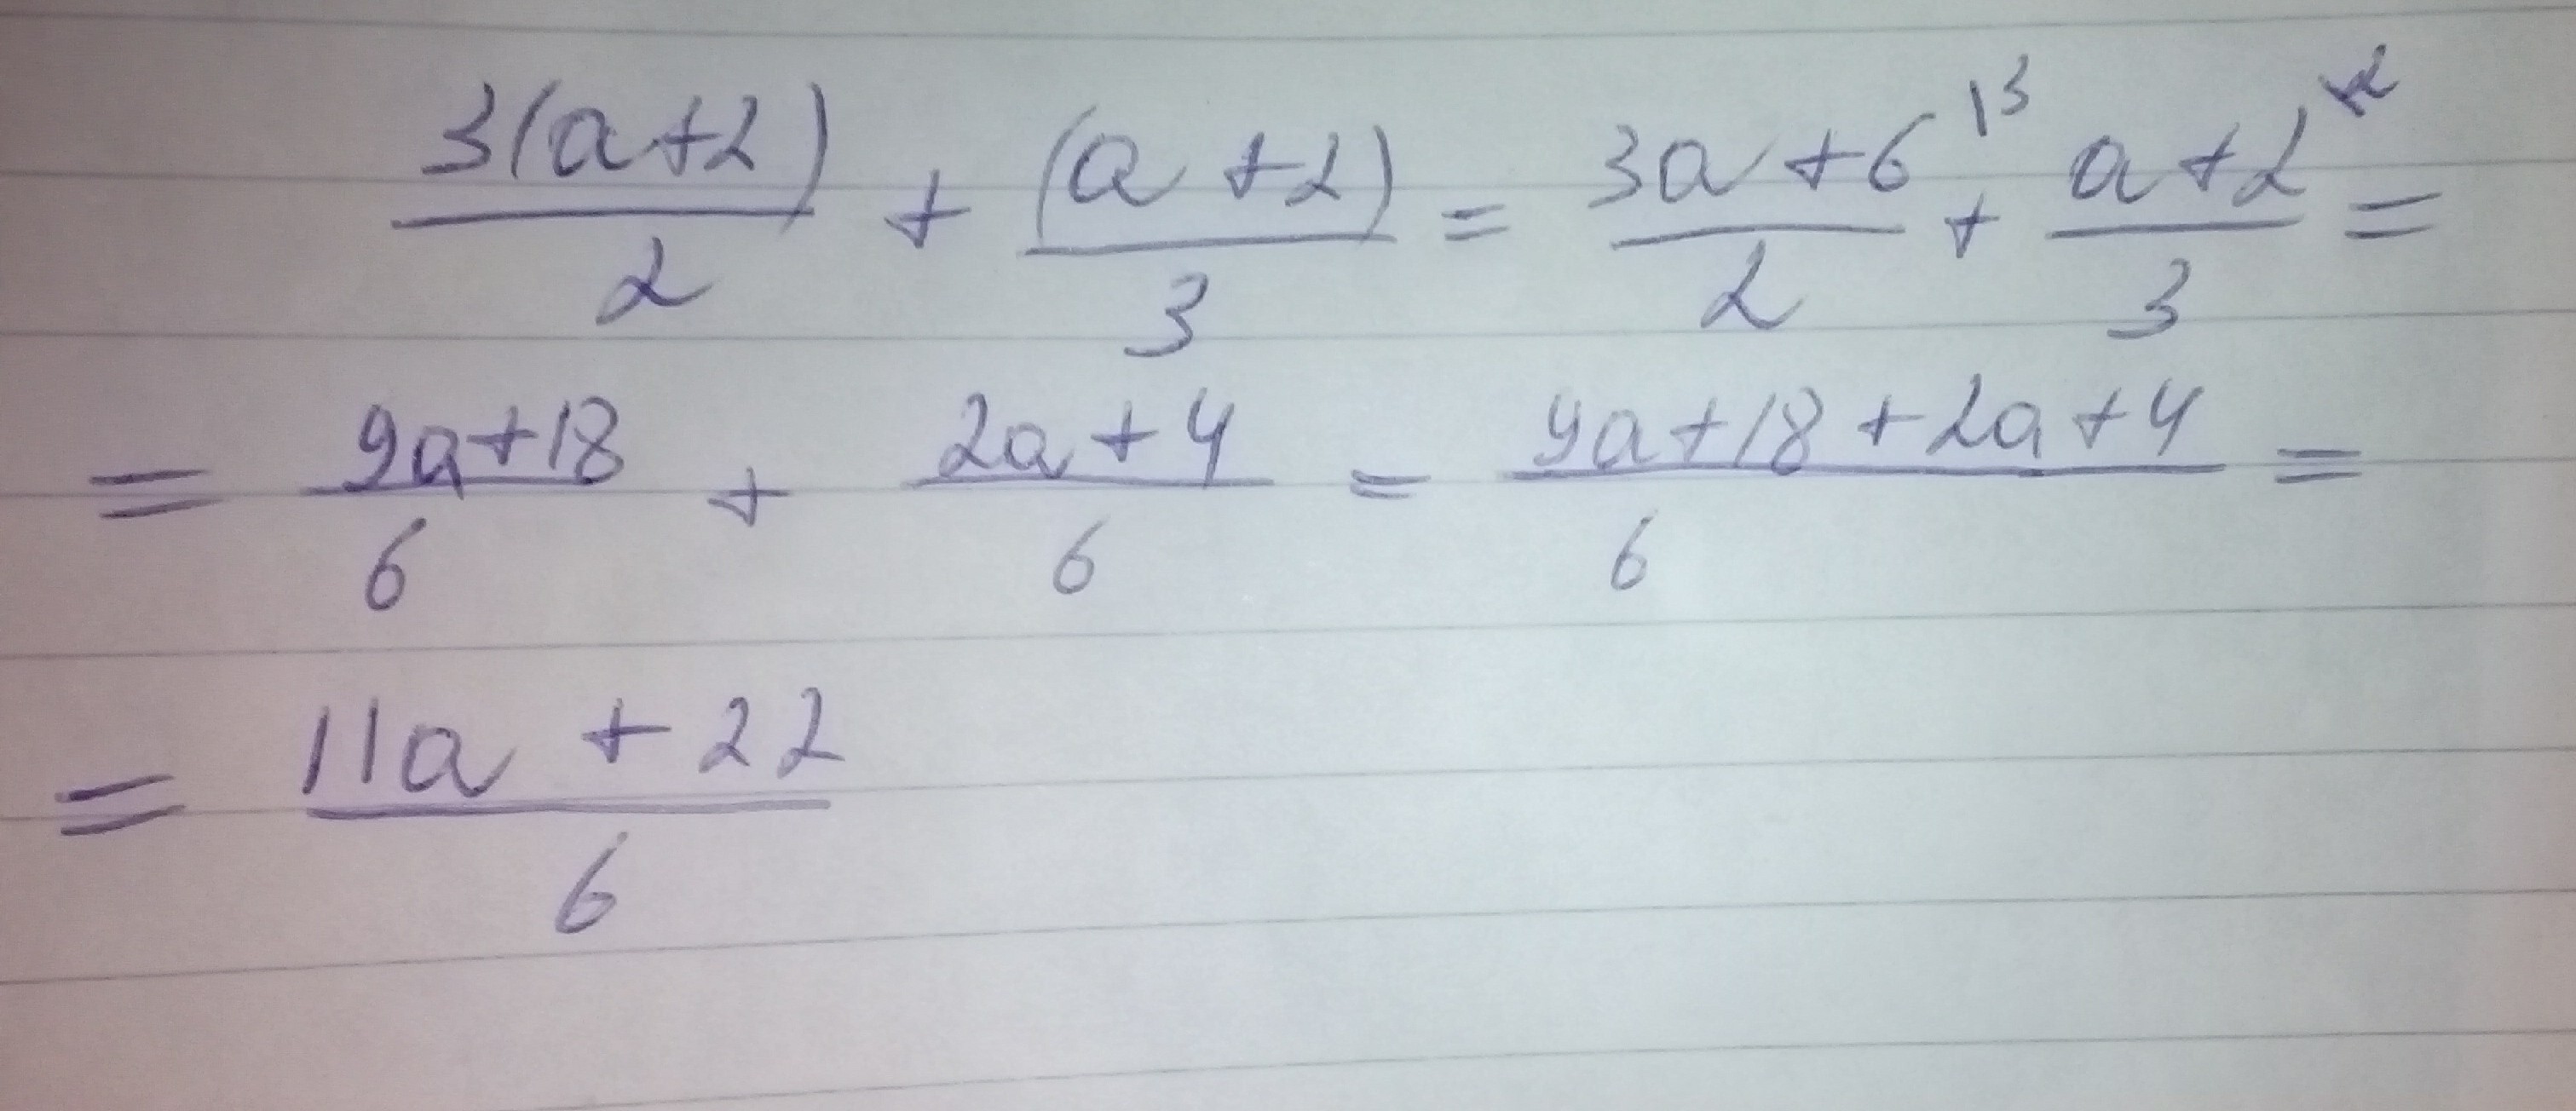 3(a+2)/2 + (a+2)/3 = 3a+6/2 ^13 + a+2/3 ^x2 =
= 9a+18/6 + 2a+4/6 = 9a+18+2a+4/6 =
= 11a + 22/6